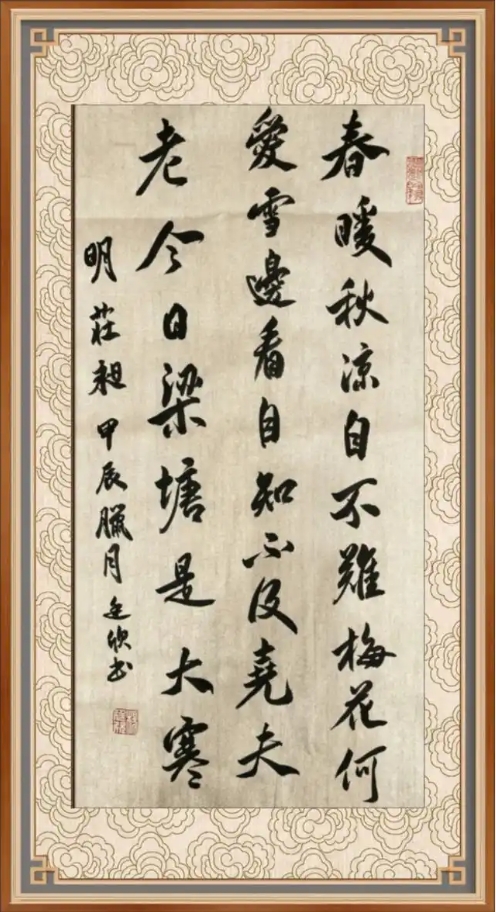 春暖秋涼自不難梅花何
愛雪邊看自知不及堯夫
老今日梁塘是大寒
明莊昶甲辰臘月欣书